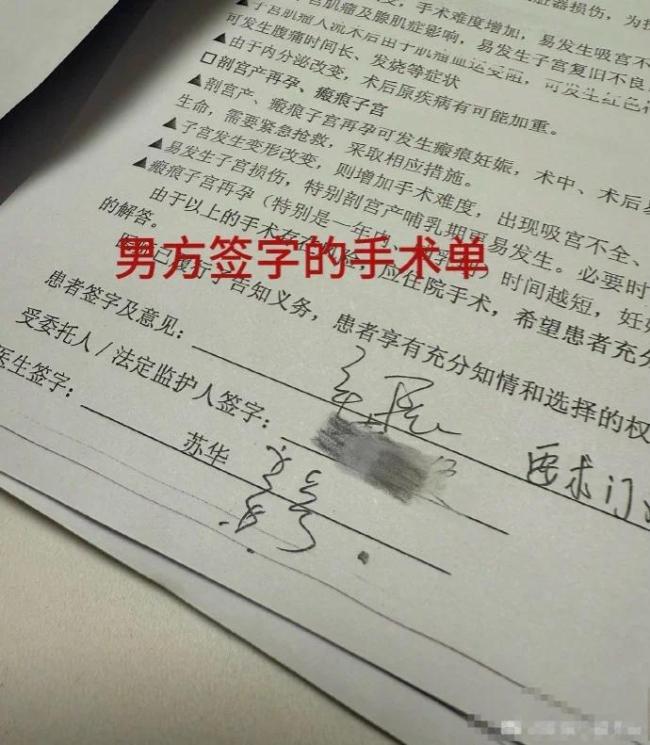 宫肌瘤及腺肌症影响，手术难度增加，易发生吸宫不
▲子宫肌瘤人流术后由于肌瘤血运受阻，可发生红色
可发生腹痛时间长、发烧等症状
▲由于内分泌改变，术后原疾病有可能加重。
□剖宫产再孕、瘢痕子宫
▲剖宫产、瘢痕子宫再孕可发生瘢痕妊娠，术中、术后易
生命，需要紧急抢救，采取相应措施。
▲子宫发生变形改变，则增加手术难度，出现吸宫不全、
▲易发生子宫损伤，特别剖宫产哺乳期更易发生。必要时
▲瘢痕子宫再孕（特别是一年内、 ）时间越短，妊
由于以上的手术存在 险，应住院手术，希望患者充分
的解答。
男方签字的手术单
已履行了告知义务，患者享有充分知情和选择的权
患者签字及意见：
要求门
受委托人／法定监护人签字：
医生签字：
苏华